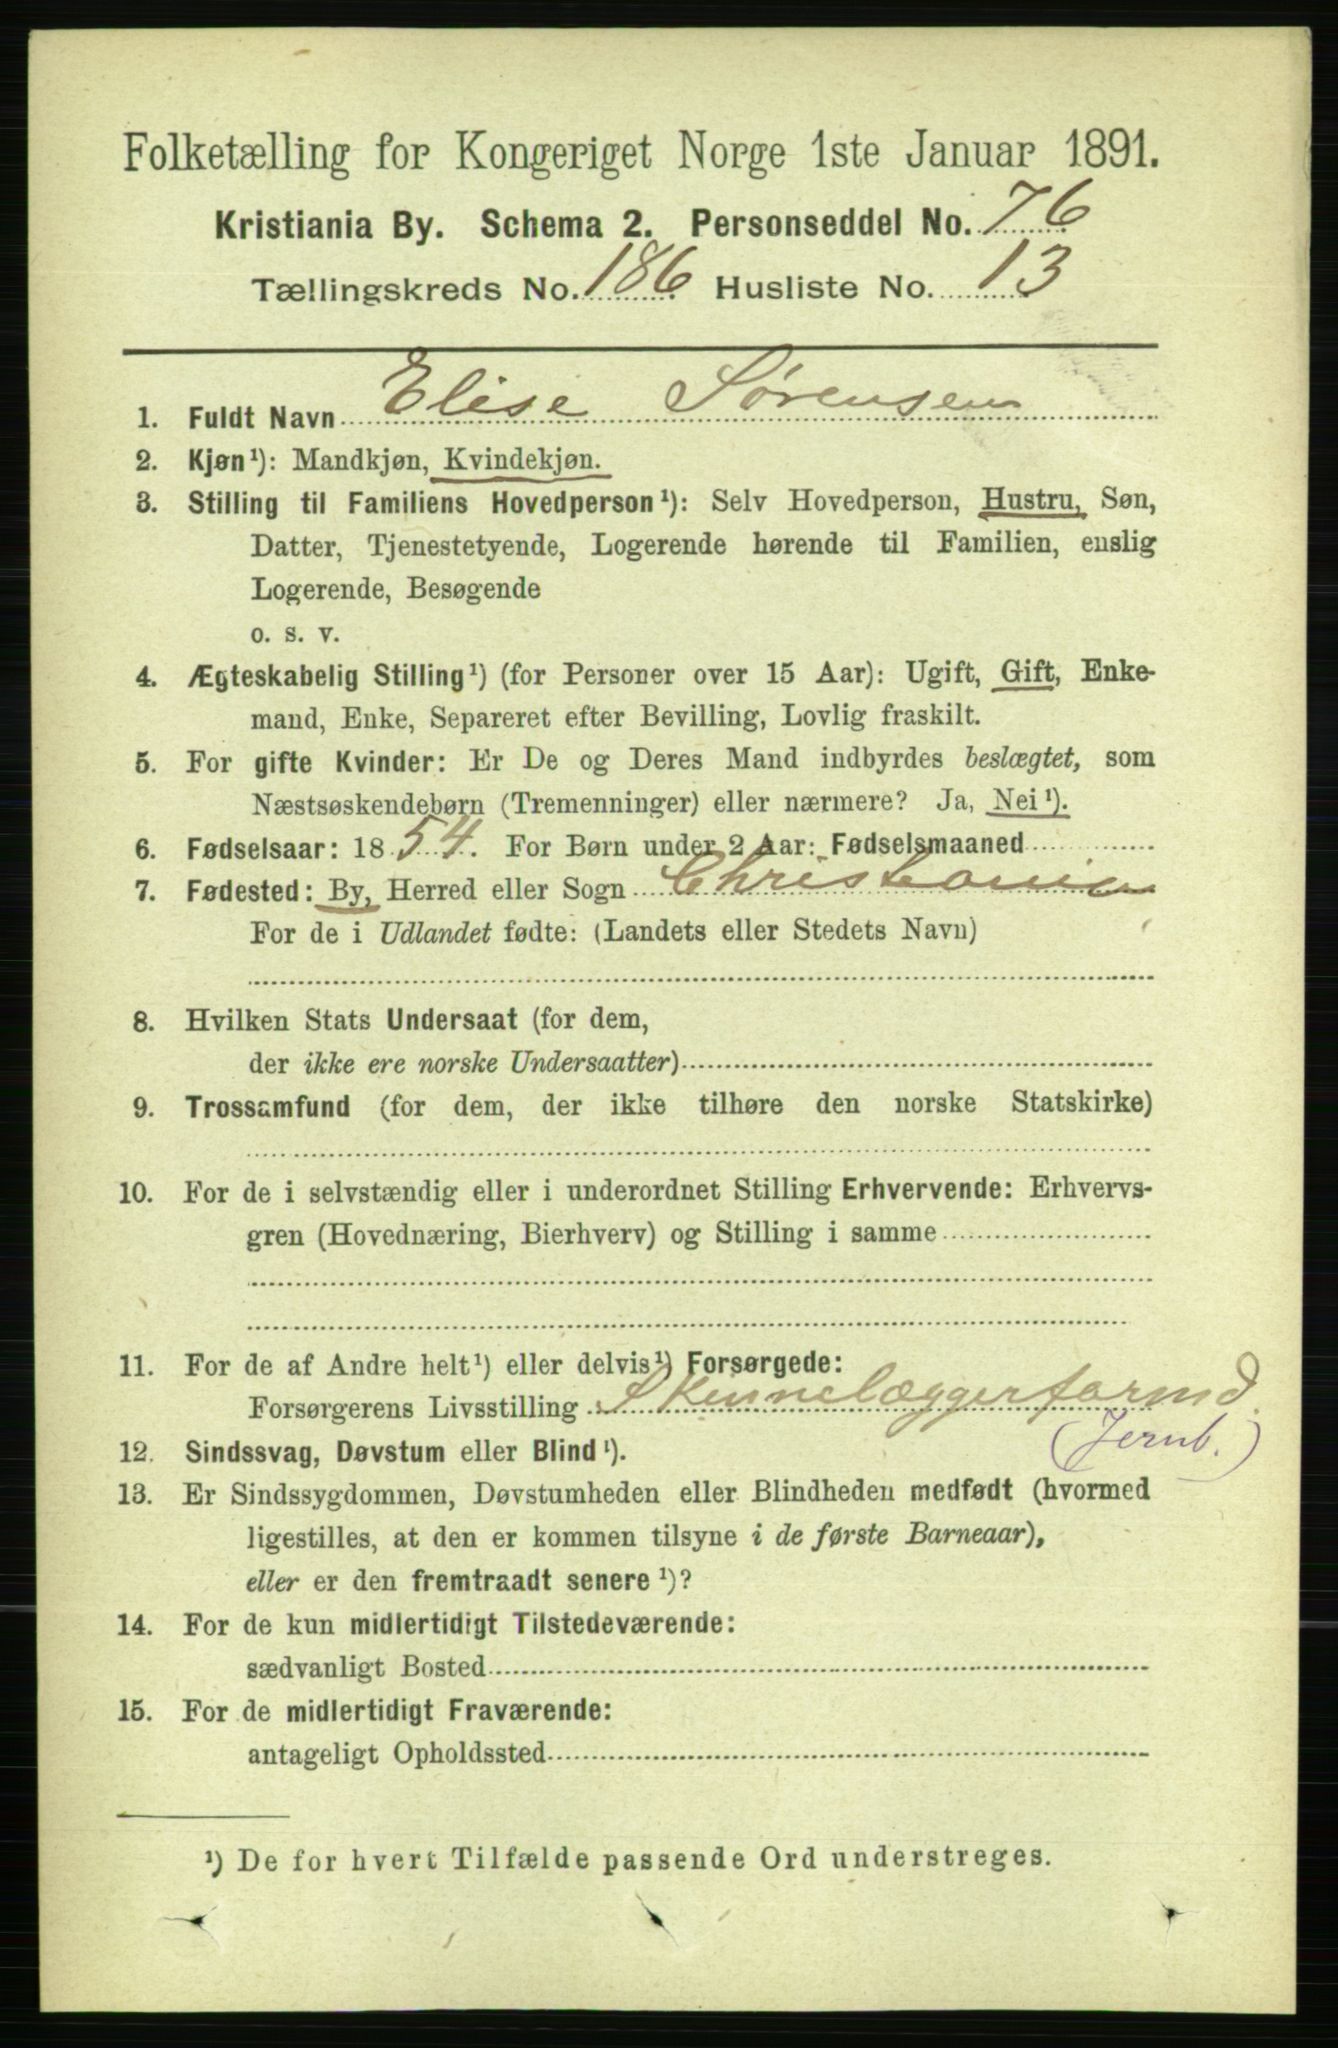 Folketælling for Kongeriget Norge 1ste Januar 1891.
Kristiania By. Schema 2. Personseddel No. 76
Tællingskreds No. 186 Husliste No. 13
1. Fuldt Navn Elise Sørensen
2. Kjøn¹): Mandkjøn, Kvindekjøn.
3. Stilling til Familiens Hovedperson¹): Selv Hovedperson, Hustru, Søn,
Datter, Tjenestetyende, Logerende hørende til Familien, enslig
Logerende, Besøgende
o. s. v.
4. Ægteskabelig Stilling¹) (for Personer over 15 Aar): Ugift, Gift, Enke-
mand, Enke, Separeret efter Bevilling, Lovlig fraskilt.
5. For gifte Kvinder: Er De og Deres Mand indbyrdes beslægtet, som
Næstsøskendebørn (Tremenninger) eller nærmere? Ja, Nei¹).
6. Fødselsaar: 1854. For Børn under 2 Aar: Fødselsmaaned
7. Fødested: By, Herred eller Sogn Christiania
For de i Udlandet fødte: (Landets eller Stedets Navn)
8. Hvilken Stats Undersaat (for dem,
der ikke ere norske Undersaatter)
9. Trossamfund (for dem, der ikke tilhøre den norske Statskirke)
10. For de i selvstændig eller i underordnet Stilling Erhvervende: Erhvervs-
gren (Hovednæring, Bierhverv) og Stilling i samme
11. For de af Andre helt¹) eller delvis¹) Forsørgede:
Forsørgerens Livsstilling Skinnelæggerformd.
(Jernb.)
12. Sindssvag, Døvstum eller Blind¹).
13. Er Sindssygdommen, Døvstumheden eller Blindheden medfødt (hvormed
ligestilles, at den er kommen tilsyne i de første Barneaar),
eller er den fremtraadt senere¹)?
14. For de kun midlertidigt Tilstedeværende:
sædvanligt Bosted
15. For de midlertidigt Fraværende:
antageligt Opholdssted
¹) De for hvert Tilfælde passende Ord understreges.